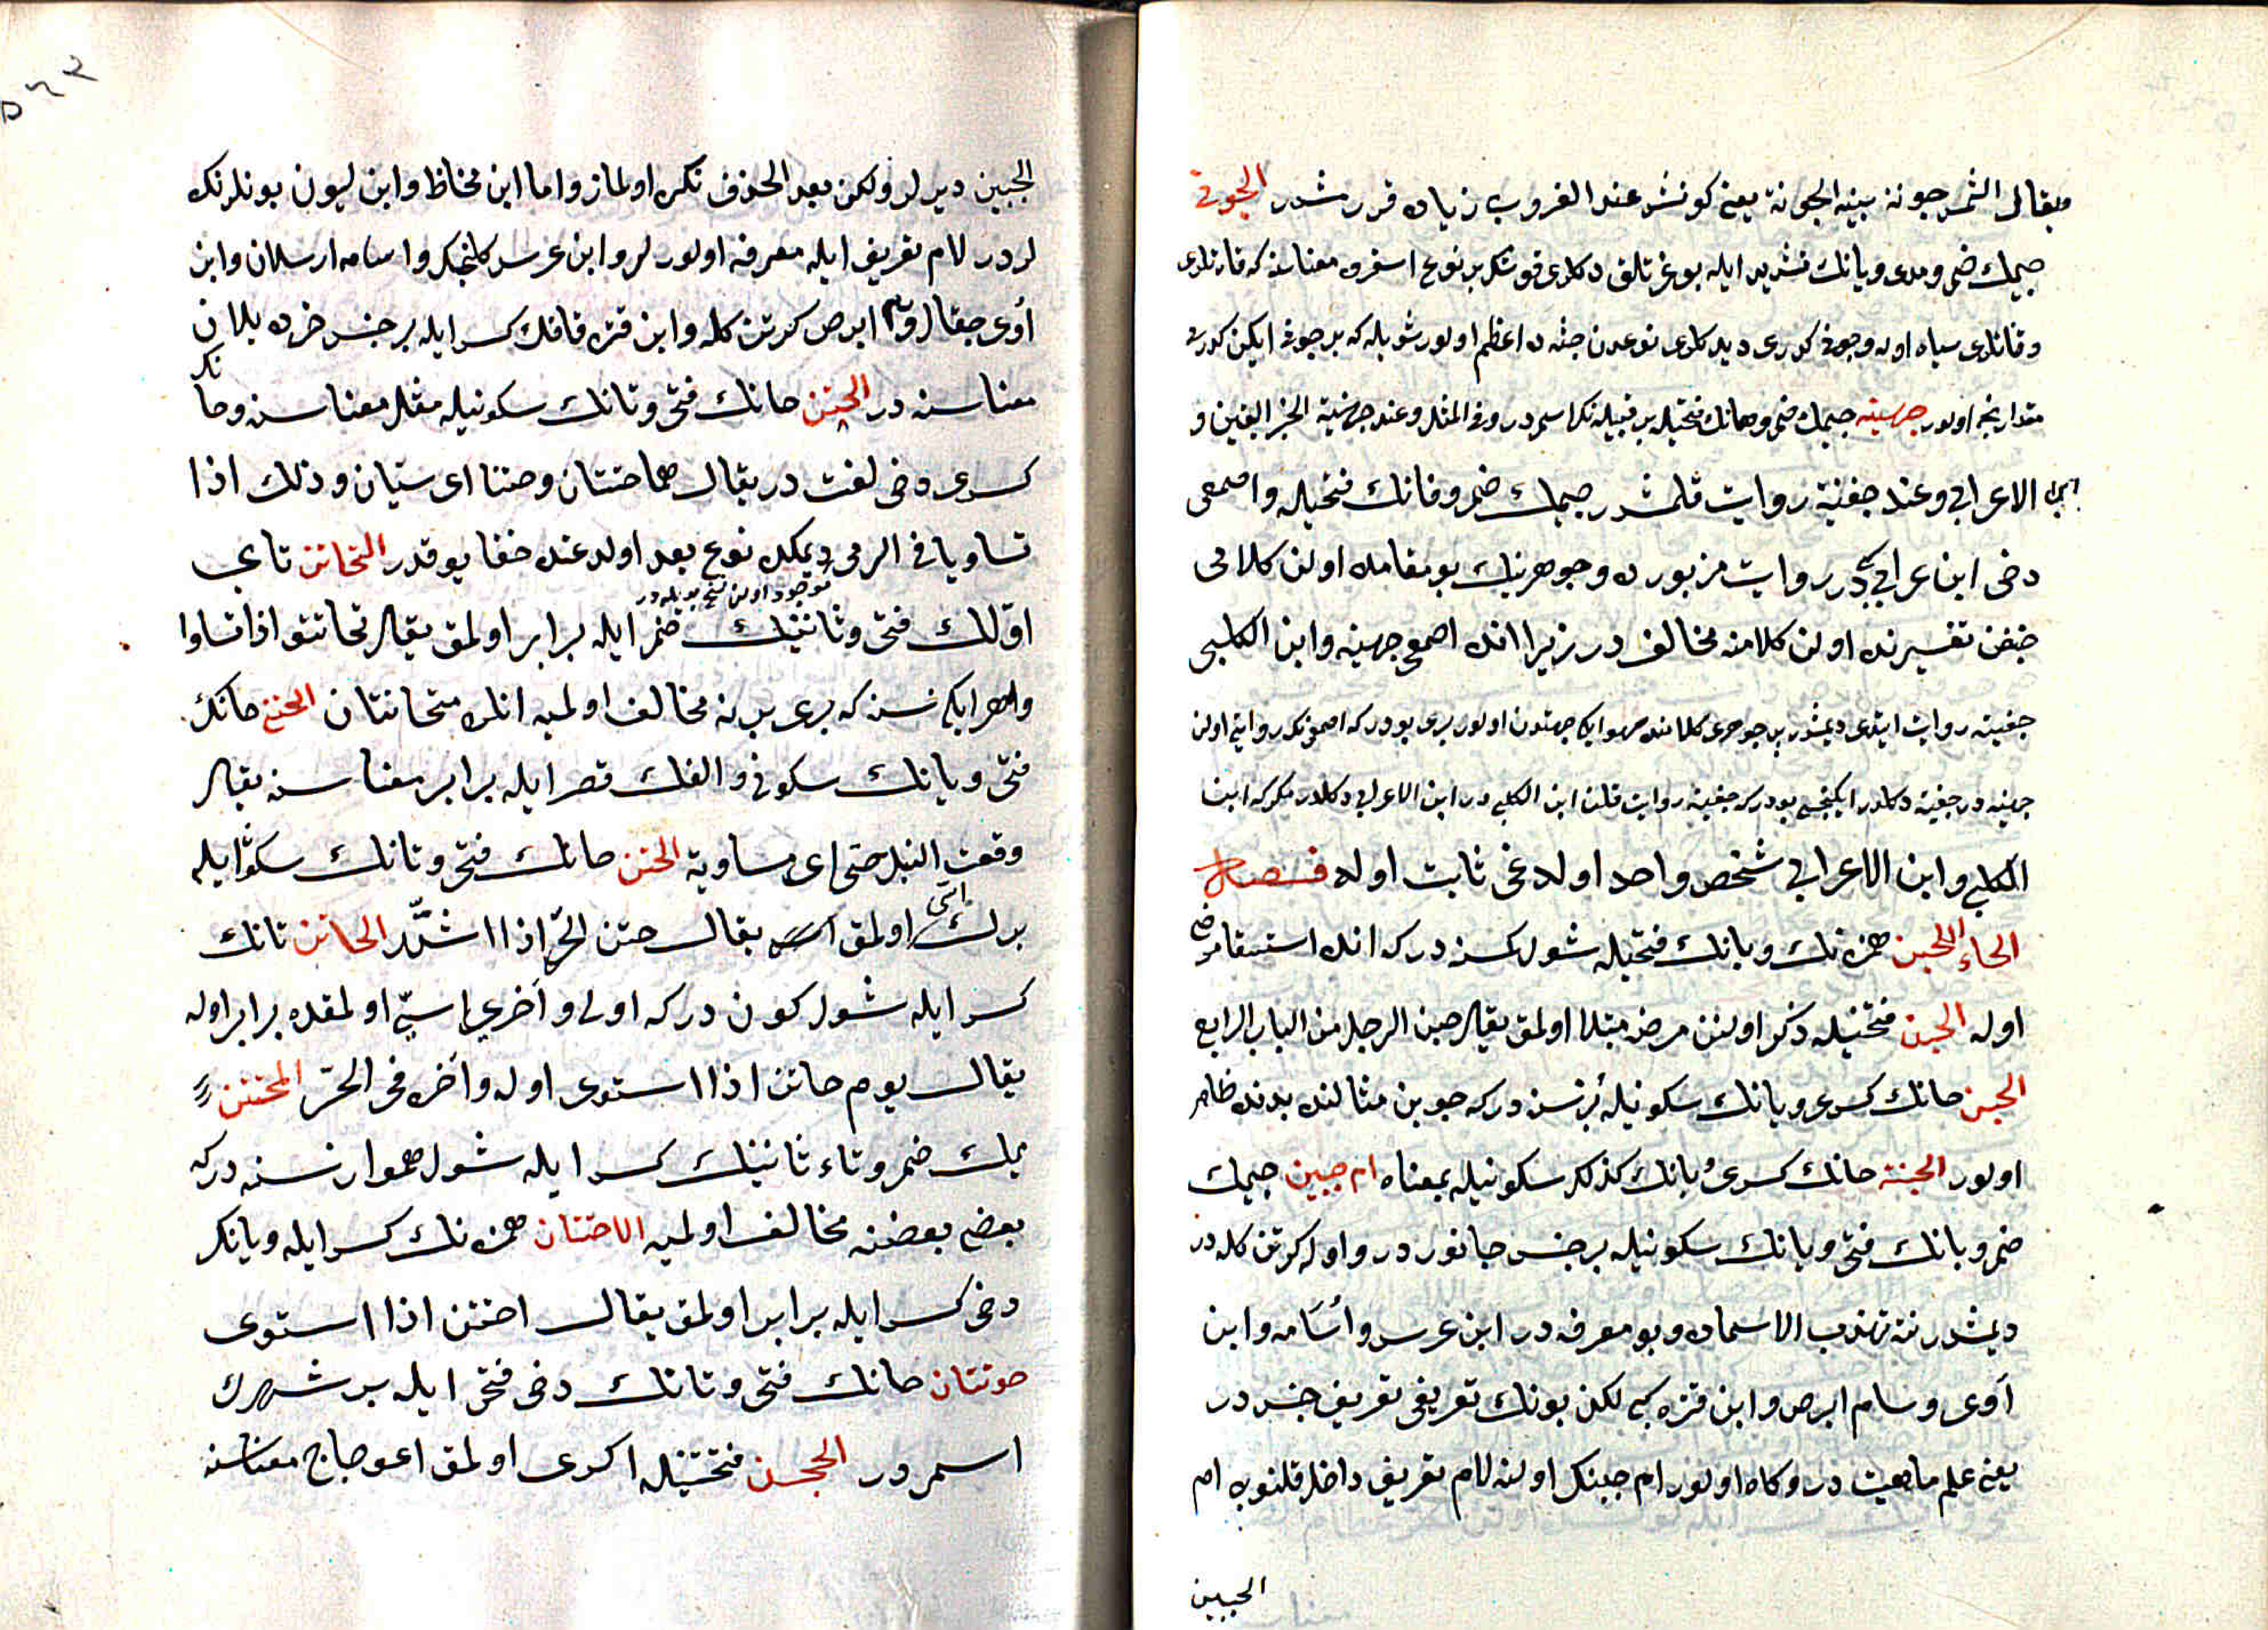 ويقال الشمس جونة بينة الجونة يعني كونش عند الغروب زياده قررمشدر الجوني
جيمك ضمي ومدى ويانك تشديد ايله بوغرتلق دكلرى قوشكه بر نوع اسفرود معناسنه كه قارنلرى
وقانتلرى سياه اوله وجوني كدرى ديدكلرى نوعدن جثه ده اعظم اولور شويله كه بر جوني ايكن كدرى
مقدارينجه اولور جهينه جيمك ضمي وهانك فتحيله بر قبيله نك اسمدر وفي المثل وعند جهينة الخبر اليقين و
ابن الاعرابي وعند جفينة روايت قلمشدر جيمك ضمي وفانك فتحيله واصمعي
دخي ابن عرابي كبيدر روايت مزبورده وجوهرينك بو مقامده اولن كلامى
جفن تفسيرنده اولن كلامنه مخالفدر زيرا انده اصمعي جهينه وابن الكلبي
جفينه روايت ايتدى ديمشدر پس جوهرى كلامنده سهو ايكي جهتدن اولور برى بودر كه اصمعينك روايتي اولن
جهينه در جفينه دكلدر ايكنجسي بودر كه جفينه روايت قلن ابن الكلبي در ابن الاعرابي دكلدر مكر كه ابن
الكلبي وابن الاعرابي شخص واحد اولدغي ثابت اوله فصل
الحاء الاحبن همزه نك وبانك فتحيله شول كمسنه در كه انده استسقا مرضي
اوله الحبن فتحتيله ذكر اولنن مرضه مبتلا اولمق يقال حبن الرجل من الباب الرابع
الحبن حانك كسرى وبانك سكونيله بر نسنه در كه جوبن مثالنده بدنده ظاهر
اولور الحبنة حانك كسرى وبانك كذلك سكونيله بمعناه ام حبين حيمك
ضمي وبانك فتحي ويانك سكونيله بر جنس جانور در واول كرتن كله در
ديمشدر ننه تهذيب الاسماده وبو معرفه در ابن عرس واسامه وابن
آوى وسام ابرص وابن قتره كبي لكن بونك تعريفي تعريف جنسدر
يعني علم ماهيت در وكاه اولور ام حبينك اولنه لام تعريف داخل قلنوب ام
الحبين
الحبين ديرلر ولكن بعد الحذف نكره اولماز واما ابن مخاظ وابن لبون بونلر نكره
لردر لام تعريف ايله معرفه اولورلر وابن عرس كلنجك واسامه ارسلان وابن
آوى چقال وسام ابرص كرتن كله وابن قتره قافك كسر ايله بر جنس خرده يلان
معناسنه در الحتن حانك فتحي وتانك سكونيله مثل معناسنه وحانك
كسرى دخي لغتدر يقال هما حتنان وحتنا اى سيان وذلك اذا
تساويا في الرمى ديمكده نوع بعد اولدغنده خفا يوقدر التحاتن تاى
موجود اولن نسخ بويله در
اولك فتحي وثانينك ضمي ايله برابر اولمق يقال تحاتنوا اذا تساووا
ولهر ايكي نسنه كه برى برنه مخالف اولميه انلره متحاتنان الحتنى حانك
فتحي وتانك سكوني والفك قصر ايله برابر معناسنه يقال
وقعت النبل حتنى اى متساوية الحتن حانك فتحي وتانك سكوني ايله
برك اسى اولمق يقال حتن الحر اذا اشتد الحاتن تانك
كسر ايله شول كوندر كه اولى وآخرى اسى اولمقده برابر اوله
يقال يوم حاتن اذا استوى اوله وآخره في الحر المحتتن
يمك ضمي وتاء ثانينك كسر ايله شول هموار نسنه در كه
بعضي بعضنه مخالف اولميه الاحتتان همزه نك كسر ايله وتانك
دخي كسر ايله برابر اولمق يقال احتتن اذا استوى
حوتنان حانك فتحي وتانك دخي فتحي ايله بر شهرك
اسمدر الحجن فتحتيله اكرى اولمق اعوجاج معناسنه